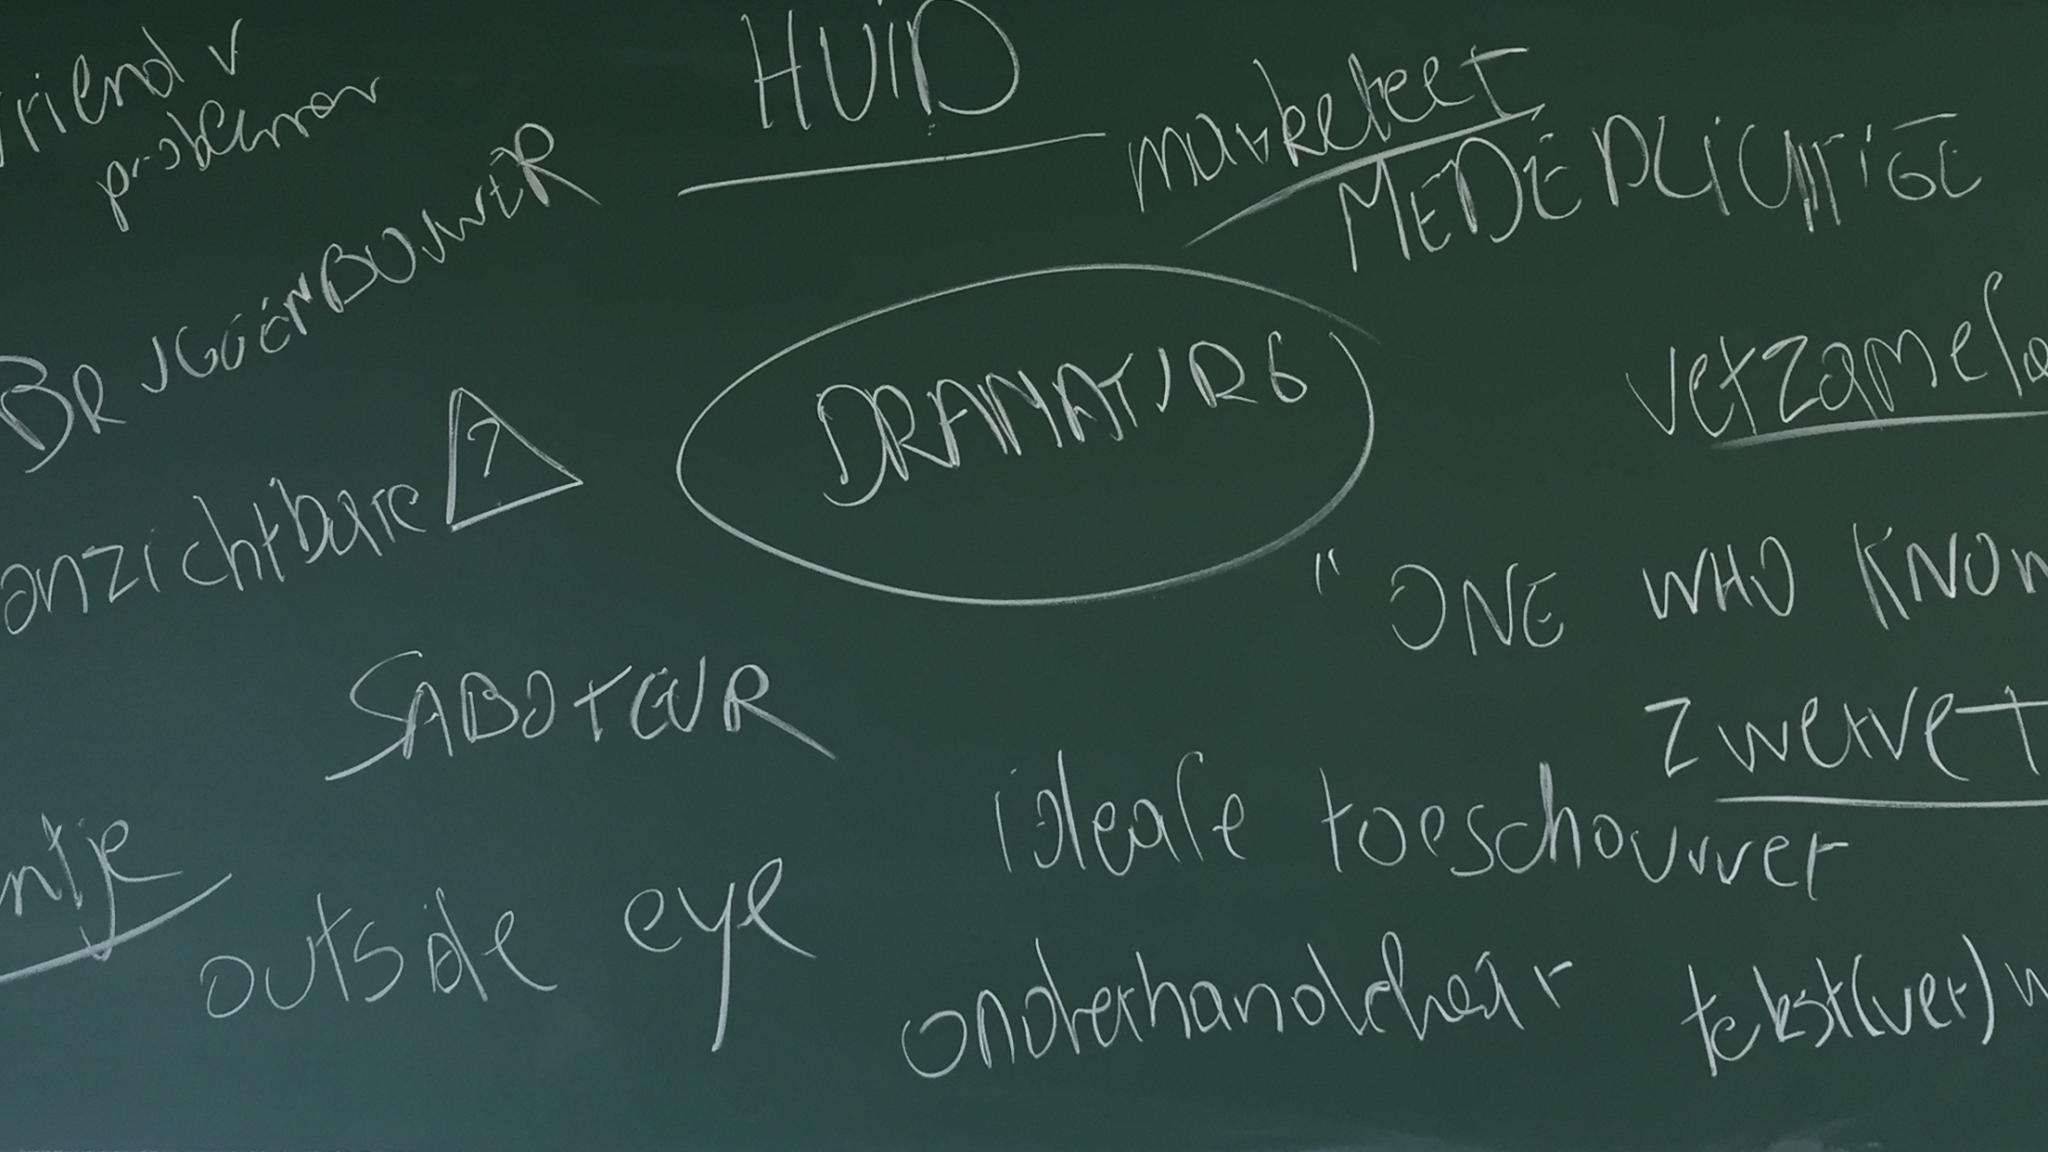 HUID
vriend v
probleman
marketeer
MEDEPLICHTIGE
BRUGGENBOUWER
DRAMATURG
verzamela
onzichtbare ?
"ONE WHO KNOW
SABOTEUR
zwerver
ideale toeschouwer
ntje
outside eye
onderhandelaar
tekst(ver)w